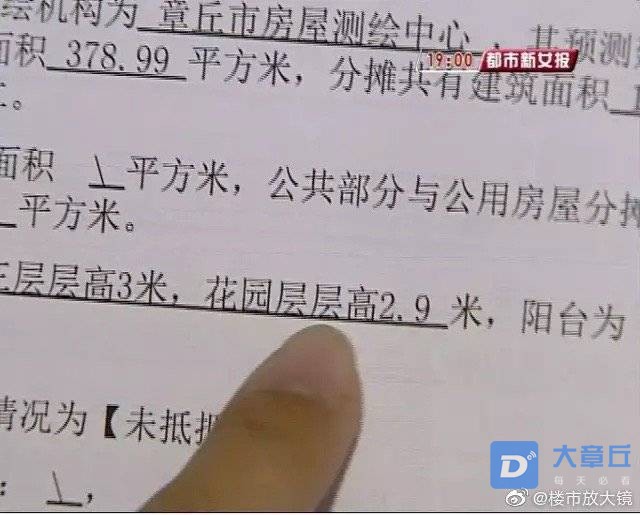 绘机构为 章丘市房屋测绘中心 ，其预测
19:00 都市新女报
面积 378.99 平方米，分摊共有建筑面积
面积 \ 平方米，公共部分与公用房屋分摊
平方米。
三层层高3米，花园层层高2.9 米，阳台为
情况为【未抵押
： \ ，
大章丘
每天必看
@楼市放大镜